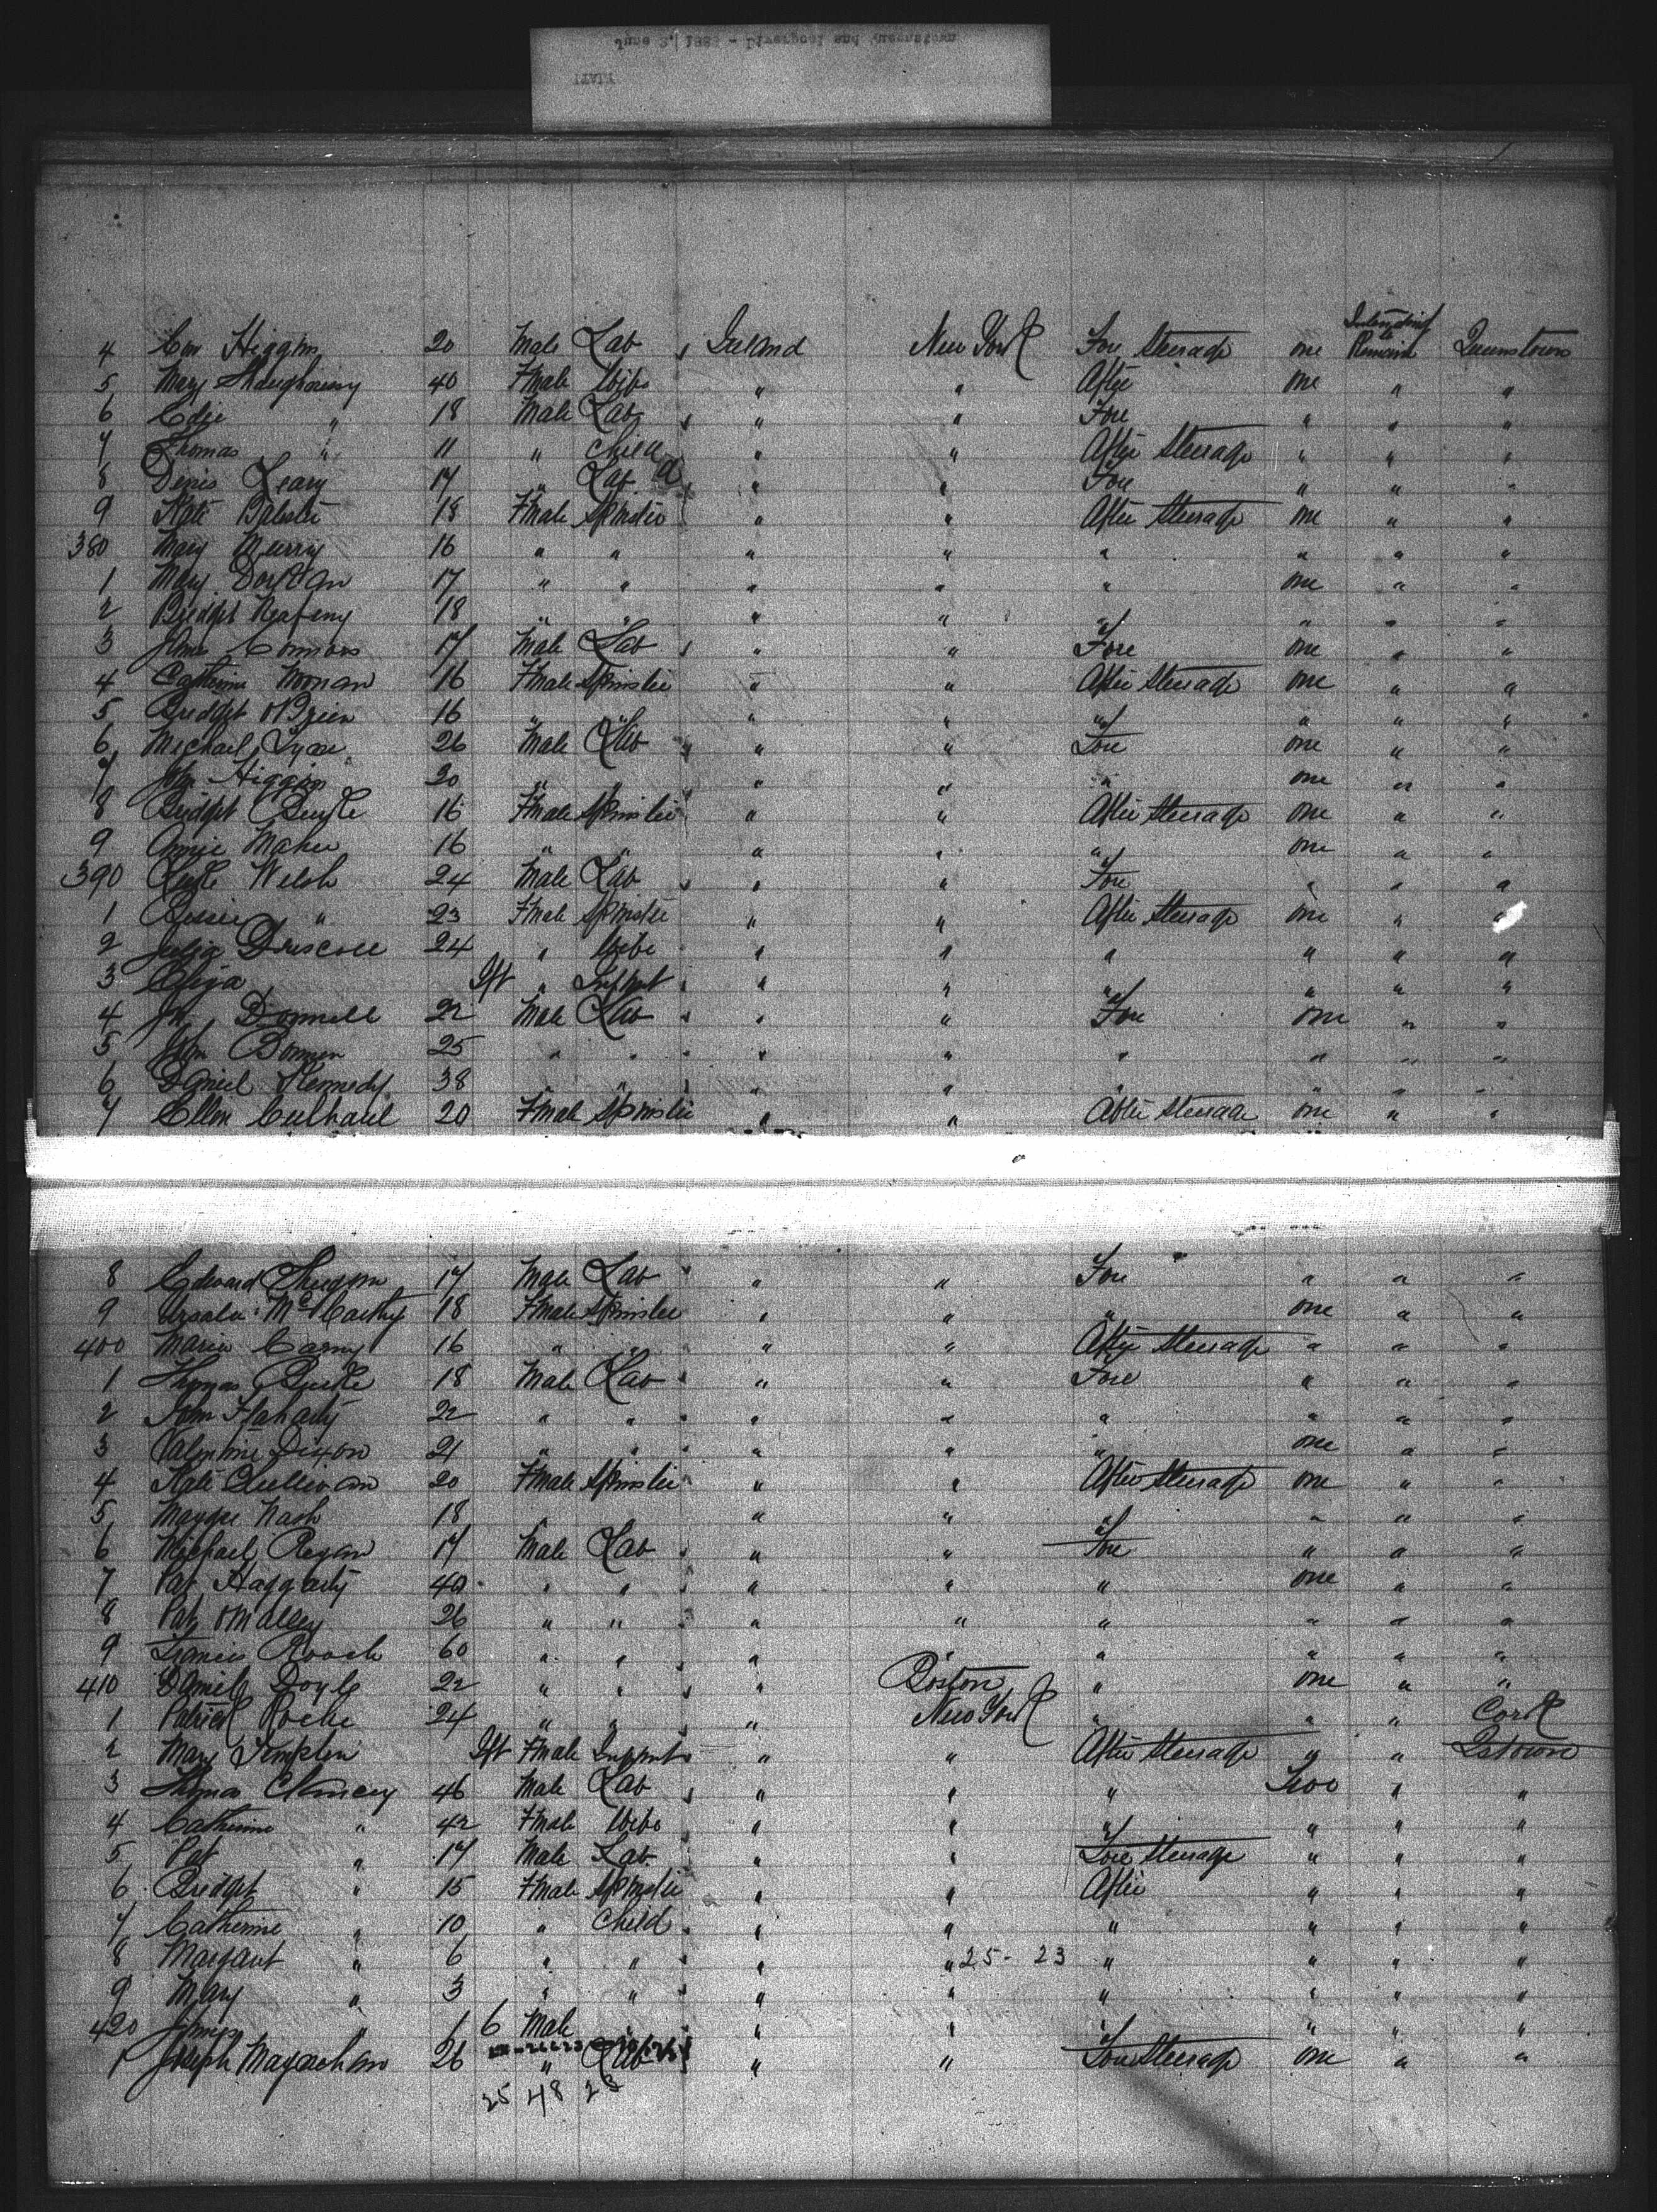 June 3, 1889 - Liverpool and Queenstown
4 Con Higgins 20 Male Lab Ireland New York Fore Steerage one Intending to Remain Queenstown
5 Mary Shaughnessy 40 Fmale Wife " " After one " "
6 " 18 Male Lab " " Fore " " "
7 Thomas " 11 " Child " " After Steerage " " "
8 Denis Leary 17 " Lab " " Fore " " "
9 Kate 18 Fmale Spinster " " After Steerage one " "
380 Mary Murray 16 " " " " " " " "
1 Mary 17 " " " " " one " "
2 Bridget 18 " " " " " " " "
3 John Connors 17 Male Lab " " Fore one " "
4 Catherine Noonan 16 Fmale Spinster " " After Steerage one " "
5 Bridget OBrien 16 " " " " " " " "
6 Michael 26 Male Lab " " Fore one " "
7 Jhn Higgins 20 " " " " one " "
8 Bridget Burke 16 Fmale Spinster " " After Steerage one " "
9 Annie Maher 16 " " " " " one " "
390 Welsh 24 Male Lab " " Fore " " "
1 Bessie " 23 Fmale Spinster " " After Steerage one " "
2 Julia Driscoll 24 " Wife " " " " " "
3 Eliza Ift " Infant " " " " " "
4 Jn Donnell 22 Male Lab " " Fore one " "
5 John 25 " " " " " " " "
6 Daniel Kennedy 38 " " " " " " " "
7 Ellen Culhane 20 Fmale Spinster " " After Steerage one " "
8 Edward 17 Male Lab " " Fore " " "
9 Ursala McCarthy 18 Fmale Spinster " " " one " "
400 Maria 16 " " " " After Steerage " " "
1 Thomas Burke 18 Male Lab " " Fore " " "
2 John Flaharty 22 " " " " " " " "
3 Valentine Dixon 21 " " " " " one " "
4 Kate Sullivan 20 Fmale Spinster " " After Steerage one " "
5 Maggie Nash 18 " " " " " " "
6 Michael Regan 17 Male Lab " " Fore " " "
7 Pat Haggarty 40 " " " " " one " "
8 Pat OMalley 26 " " " " " " " "
9 Francis Roach 60 " " " " " " " "
410 Daniel Doyle 22 " " " Boston " one " "
1 Patrick Roche 24 " " " New York " " " Cork
2 Mary Templin Ift Fmale Infant " " After Steerage " " Qstown
3 Thomas Clancy 46 Male Lab " " " Two " "
4 Catherine " 42 Fmale Wife " " " " " "
5 Pat " 17 Male Lab " " Fore Steerage " " "
6 Bridget " 15 Fmale Spinster " " After " " "
7 Catherine " 10 " Child " " " " " "
8 Margaret " 6 " " " " 25 - 23 " " " "
9 Mary " 3 " " " " " " " "
420 James " 1 6 Male " " " " " " "
1 Joseph 26 " Lab " " Fore Steerage one " "
25 48 23